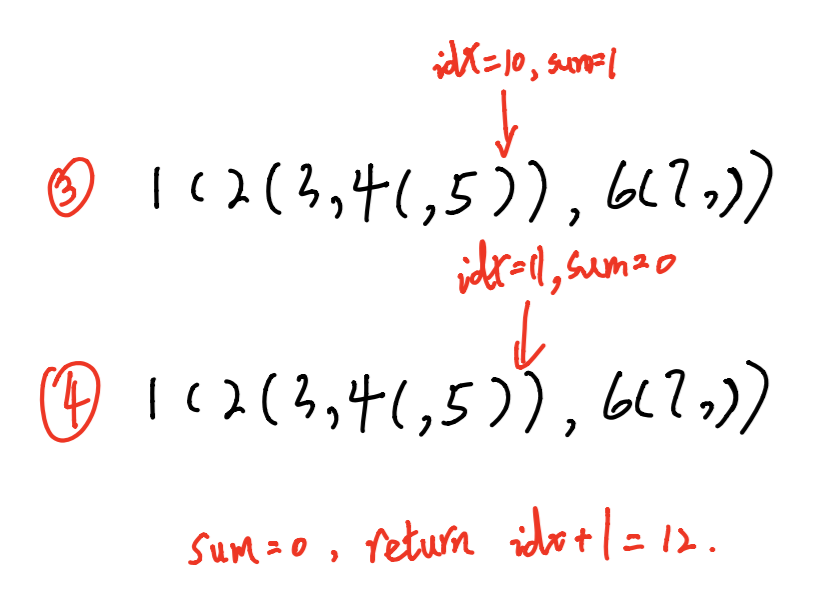 idx=10, sum=1
③ 1(2(3,4(,5)),6(7,))
idx=11, sum=0
④ 1(2(3,4(,5)),6(7,))
sum=0, return idx+1=12.